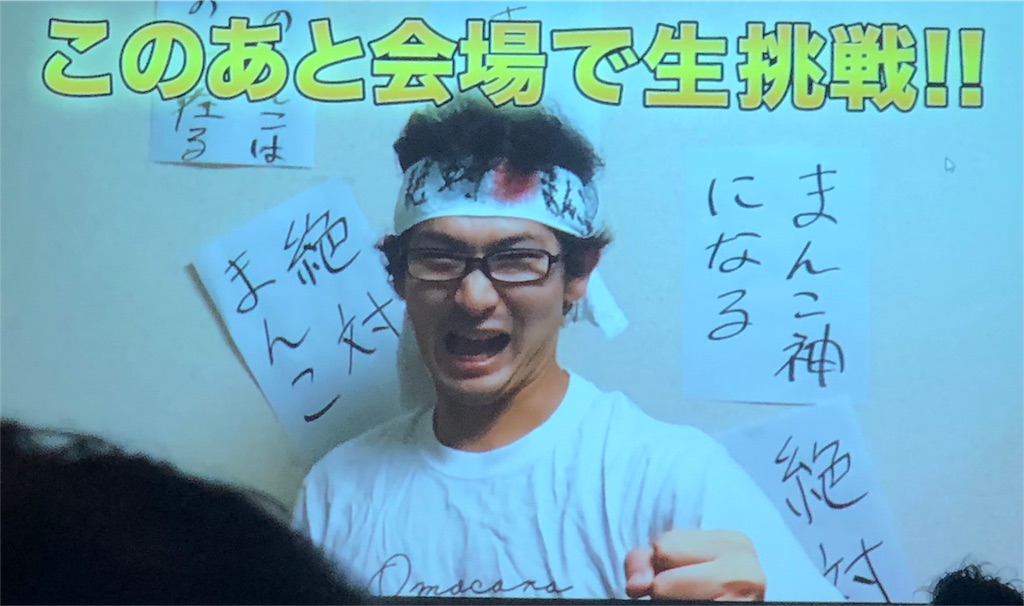 このあと会場で生挑戦!!
まんこ神
になる
絶対
まんこ
絶対
こは
在る
Omocoro